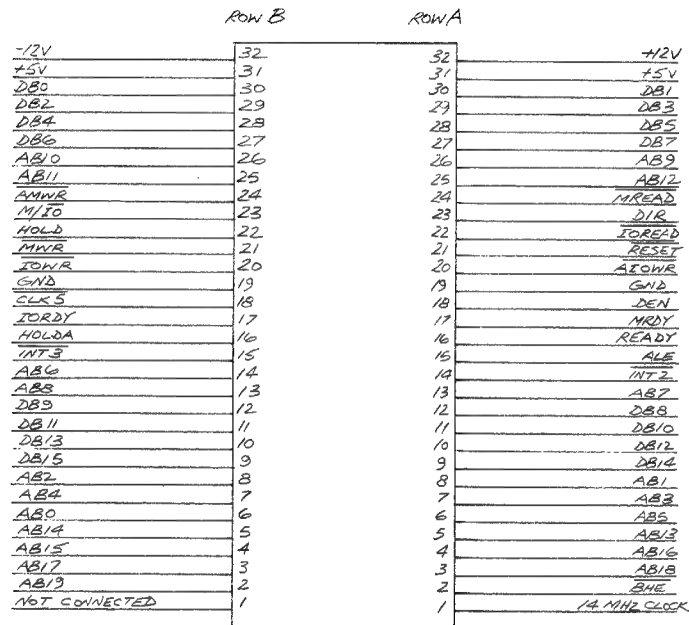 ROW B ROW A
-12V 32 32 +12V
+5V 31 31 +5V
DB0 30 30 DB1
DB2 29 29 DB3
DB4 28 28 DB5
DB6 27 27 DB7
AB10 26 26 AB9
AB11 25 25 AB12
AMWR 24 24 MREAD
M/IO 23 23 DIR
HOLD 22 22 IOREAD
MWR 21 21 RESET
IOWR 20 20 AIOWR
GND 19 19 GND
CLK5 18 18 DEN
IORDY 17 17 MRDY
HOLDA 16 16 READY
INT3 15 15 ALE
AB6 14 14 INT2
AB8 13 13 AB7
DB9 12 12 DB8
DB11 11 11 DB10
DB13 10 10 DB12
DB15 9 9 DB14
AB2 8 8 AB1
AB4 7 7 AB3
AB0 6 6 AB5
AB14 5 5 AB13
AB15 4 4 AB16
AB17 3 3 AB18
AB19 2 2 BHE
NOT CONNECTED 1 1 14 MHZ CLOCK